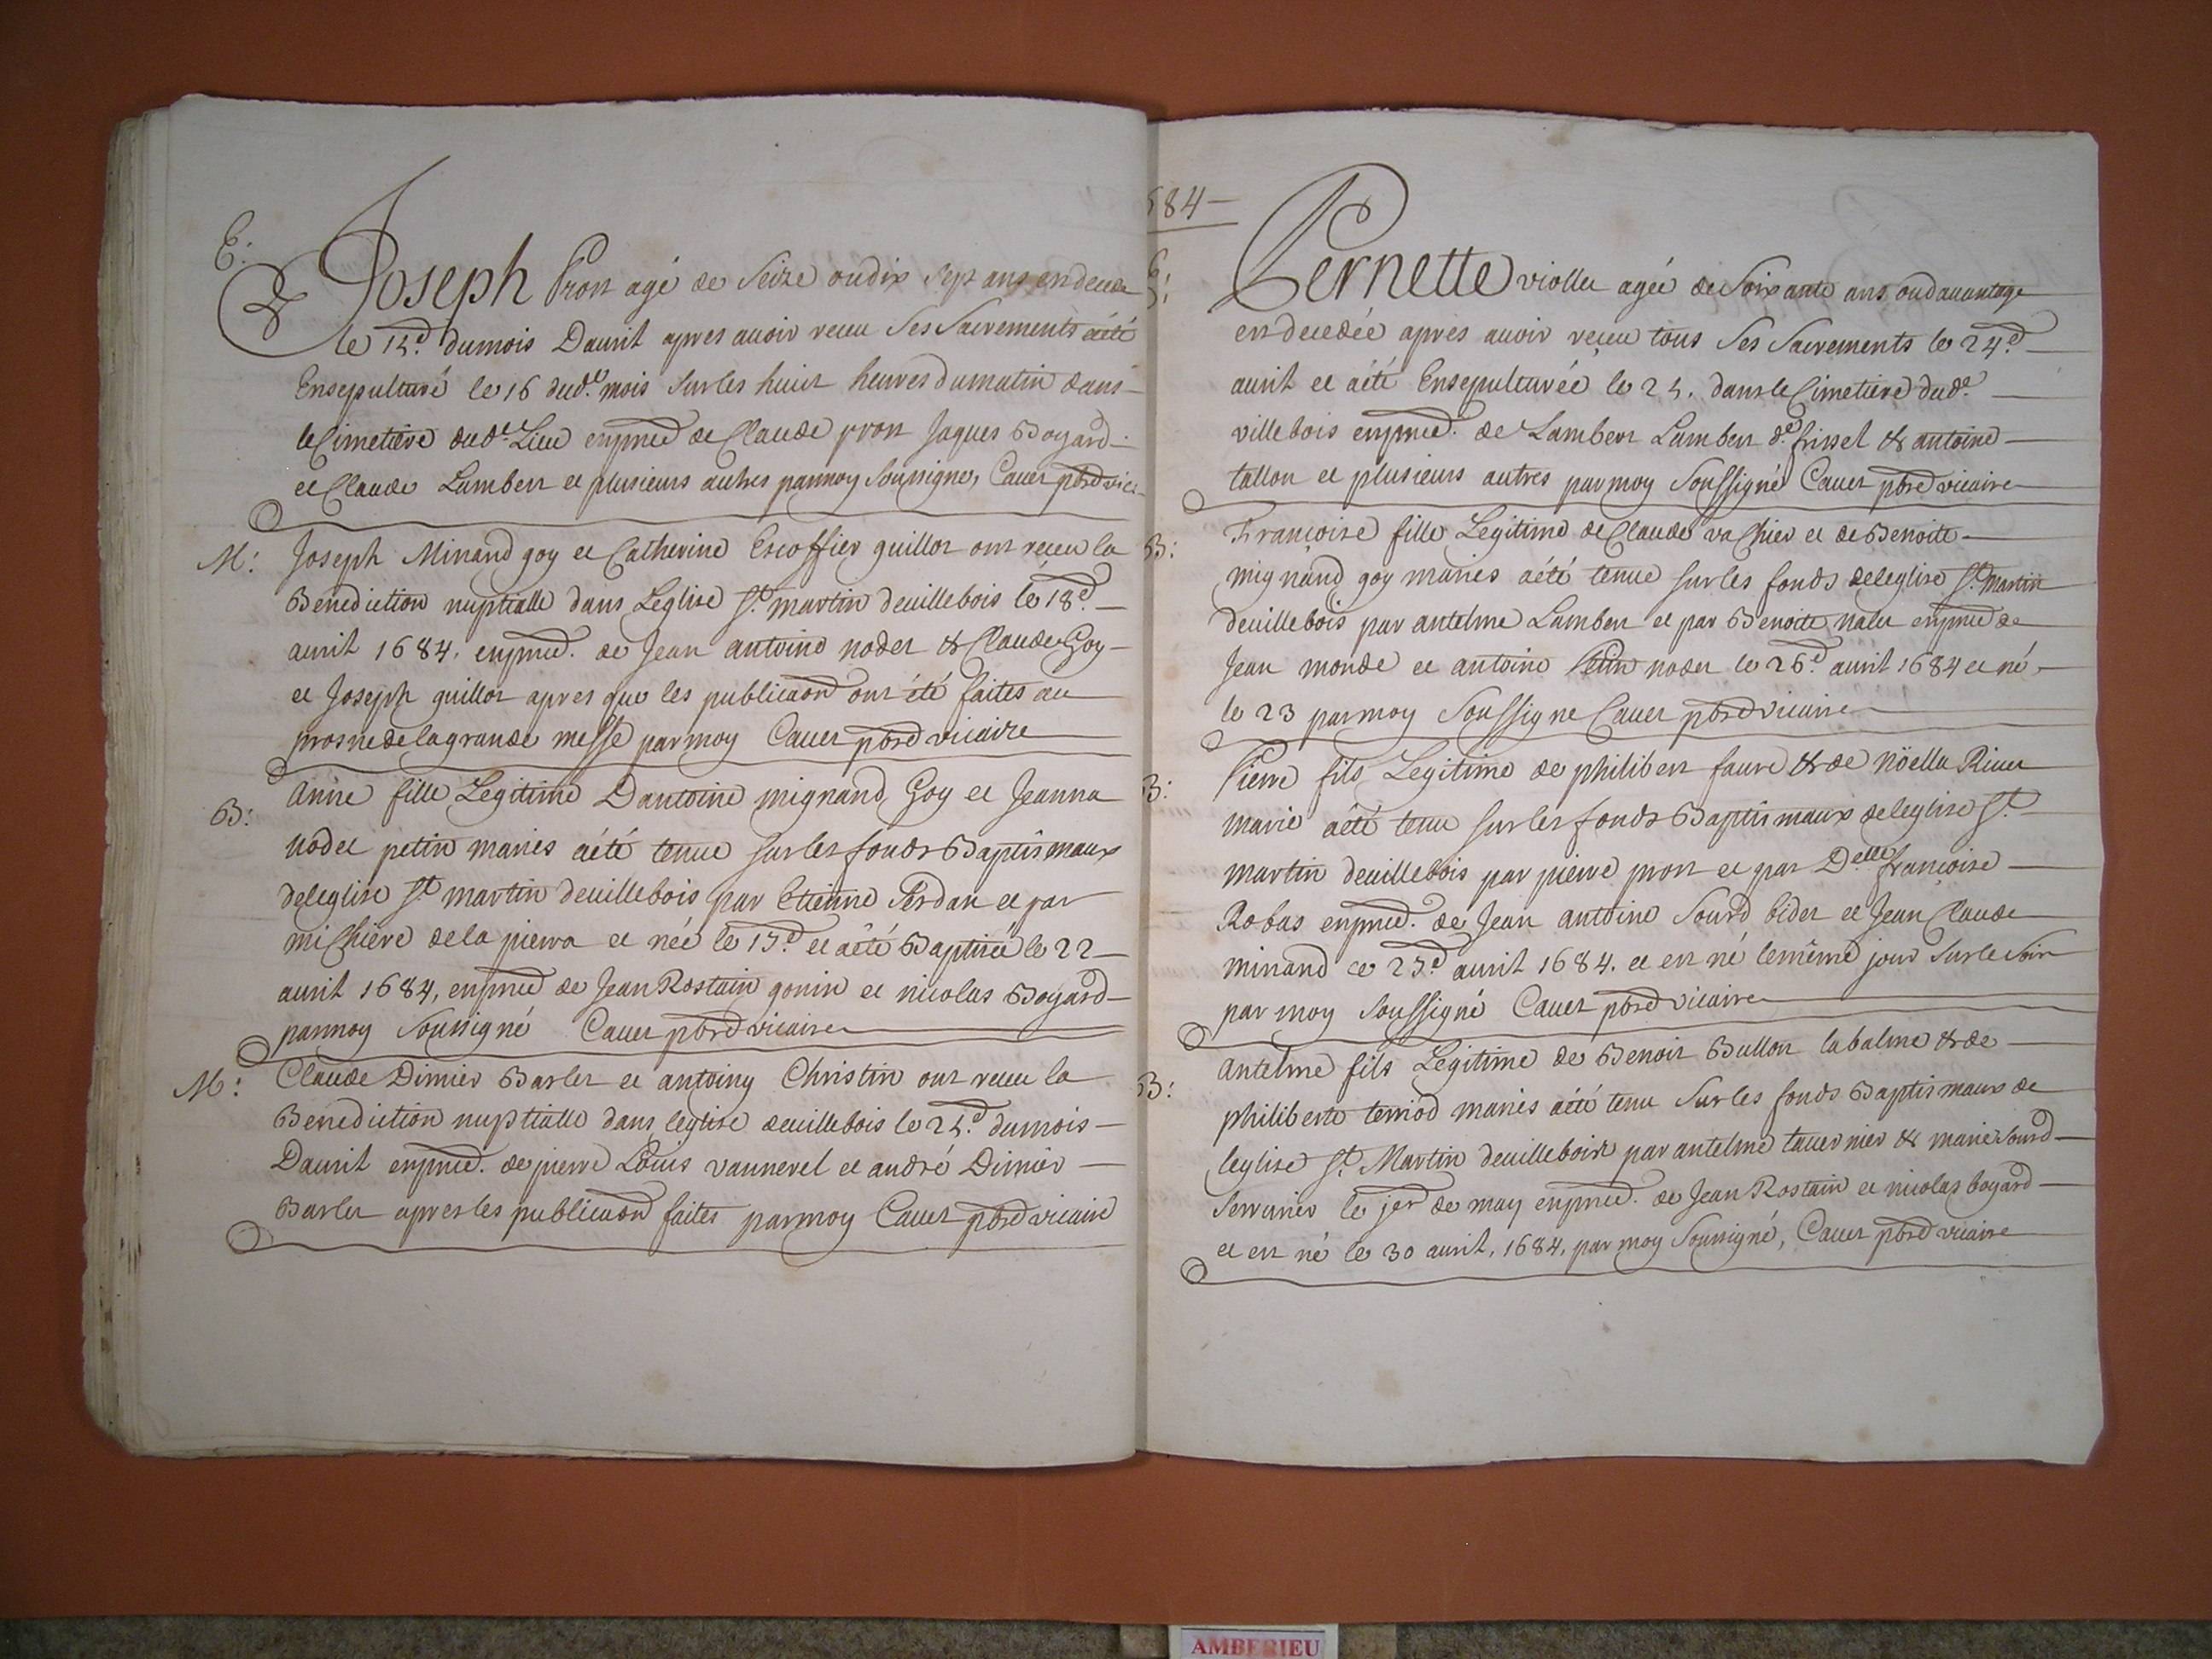 E:
Joseph Pron agé de Seize oudix Sept ans en decede
le 15.d dumois Dauril apres auoir receu Ses Sacrements aété
Ensepulturé le 16 dud.t mois Surles huict heures dumatin dans
leCimetiere dud.t Lieu enpnce de Claude pron Jaques Bogard
et Claude Lambert et plusieurs autres parmoy Soussigne, Cauet pbre vic.
M: Joseph Minand goy et Catherine Escoffier guillot ont receu la
Benediction nuptialle dans Leglise St. martin deuillebois le 18.d
auril 1684. enpnce. de Jean antoine nodet & Claude Goy
et Joseph guillot apres que les publicaōns ont été faites au
prosne delagrande messe parmoy Cauet pbre vicaire
B: Anne fille Legitime Dantoine mignand Goy et Jeanna
nodet petin mariés aété tenue surles fonds Baptismaux
deleglise St martin deuillebois par Etienne Perdan et par
miChiere dela pierra et née le 17.d et aété Baptisée le 22
auril 1684, enpnce de Jean Rostain gonin et nicolas Bogard
parmoy Soussigné Cauet pbre vicaire
M: Claude Dimier Barlet et antoiny Christin ont receu la
Benediction nuptialle dans leglise deuillebois le 25.d dumois
Dauril enpnce. de pierre Louis vannerel et andré Dimier
Barlet apres les publicaōns faites parmoy Cauet pbre vicaire
684
E: Pernette viollet agée de Soixante ans oudauantage
en decedée apres auoir receu tous Ses Sacrements le 24.d
auril et aété Ensepulturée le 25. dans le Cimetiere dud.t
villebois enpnce. de Lambert Lambert d.t frisset & antoine
tallon et plusieurs autres parmoy Soussigné Cauet pbre vicaire
B: Françoise fille Legitime de Claude vaChier et de Benoite
mignand goy mariés aété tenue surles fonds deleglise St. Martin
deuillebois par antelme Lambert et par Benoite nalet enpnce de
Jean monde et antoine Petin nodet le 26.d auril 1684 et né
le 23 parmoy Soussigne Cauet pbre vicaire
B: Pierre fils Legitime de philibert faure & de Nöella Riuet
marié aété tenu surles fonds Baptismaux deleglise St
martin deuillebois par pierre pron et par Delle françoise
Robas enpnce. de Jean antoine Sourd bidet et Jean Claude
minand ce 27.d auril 1684. et en né lemême jour Surle Soir
par moy Soussigné Cauet pbre vicaire
B: Antelme fils Legitime de Benoit Bullon labalme & de
philiberte terriod mariés aété tenu Surles fonds Baptismaux de
leglise St. Martin deuillebois par antelme tauernier & marie Sourd
Serrurier le jer de may enpnce. de Jean Rostain et nicolas bogard
et en né le 30 auril. 1684. par moy Soussigné, Cauet pbre vicaire
AMBERIEU